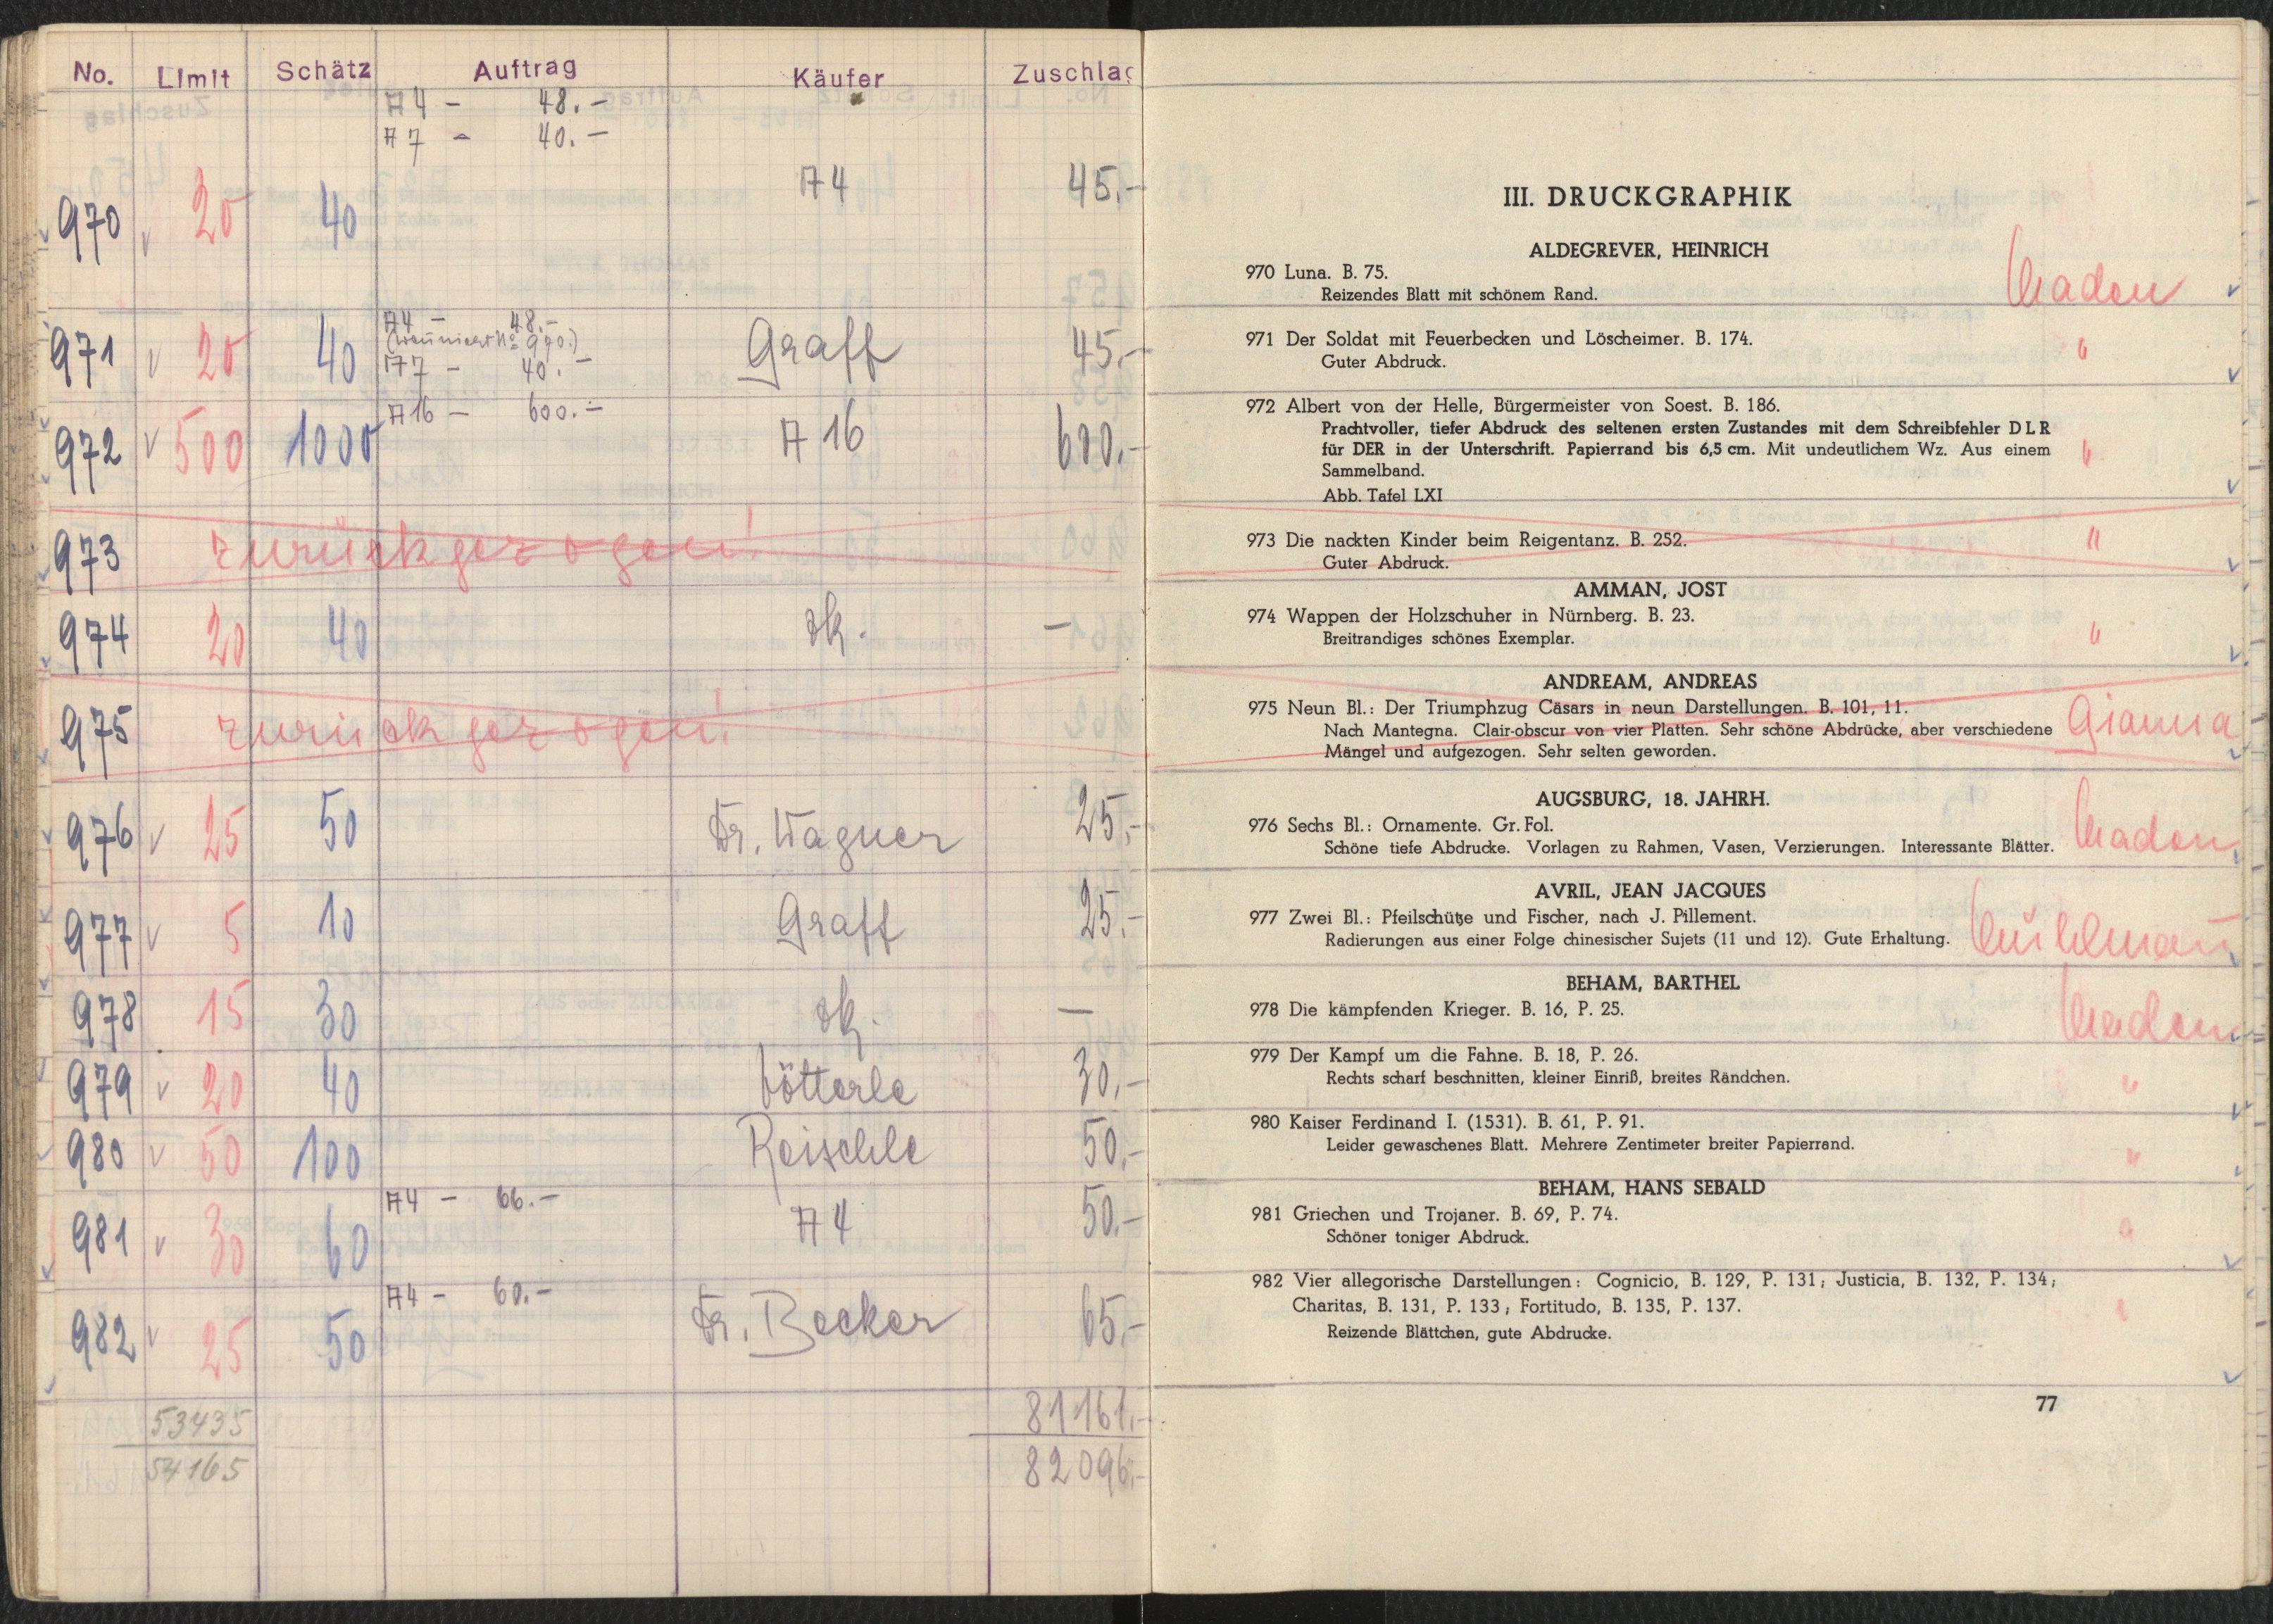 No. Limit Schätz Auftrag Käufer Zuschlag
A4 – 48.–
A7 – 40.–
970 v 20 40 A4 45.–
A4 – 48.–
(wenn nicht No 970.)
971 v 20 40 A7 – 40.– Graff 45.–
A16 – 600.–
972 v 500 1000 A16 600.–
973 zurückgezogen!
974 20 40 –
975 zurückgezogen!
976 v 25 50 Dr. Wagner 25.–
977 v 5 10 Graff 25.–
978 15 30 –
979 v 20 40 Götterle 30.–
980 v 50 100 Reischle 50.–
A4 – 66.–
981 v 30 60 A4 50.–
A4 – 60.–
982 v 25 50 Dr. Becker 65.–
53435 81161.–
54165 82096.–
III. DRUCKGRAPHIK
ALDEGREVER, HEINRICH
970 Luna. B. 75.
Reizendes Blatt mit schönem Rand.
971 Der Soldat mit Feuerbecken und Löscheimer. B. 174. "
Guter Abdruck.
972 Albert von der Helle, Bürgermeister von Soest. B. 186.
Prachtvoller, tiefer Abdruck des seltenen ersten Zustandes mit dem Schreibfehler DLR
für DER in der Unterschrift. Papierrand bis 6,5 cm. Mit undeutlichem Wz. Aus einem "
Sammelband.
Abb. Tafel LXI
973 Die nackten Kinder beim Reigentanz. B. 252. "
Guter Abdruck.
AMMAN, JOST
974 Wappen der Holzschuher in Nürnberg. B. 23. "
Breitrandiges schönes Exemplar.
ANDREAM, ANDREAS
975 Neun Bl.: Der Triumphzug Cäsars in neun Darstellungen. B. 101, 11.
Nach Mantegna. Clair-obscur von vier Platten. Sehr schöne Abdrücke, aber verschiedene Gianna
Mängel und aufgezogen. Sehr selten geworden.
AUGSBURG, 18. JAHRH.
976 Sechs Bl.: Ornamente. Gr. Fol.
Schöne tiefe Abdrucke. Vorlagen zu Rahmen, Vasen, Verzierungen. Interessante Blätter.
AVRIL, JEAN JACQUES
977 Zwei Bl.: Pfeilschütze und Fischer, nach J. Pillement.
Radierungen aus einer Folge chinesischer Sujets (11 und 12). Gute Erhaltung.
BEHAM, BARTHEL
978 Die kämpfenden Krieger. B. 16, P. 25.
979 Der Kampf um die Fahne. B. 18, P. 26.
Rechts scharf beschnitten, kleiner Einriß, breites Rändchen. "
980 Kaiser Ferdinand I. (1531). B. 61, P. 91.
Leider gewaschenes Blatt. Mehrere Zentimeter breiter Papierrand. "
BEHAM, HANS SEBALD
981 Griechen und Trojaner. B. 69, P. 74. "
Schöner toniger Abdruck.
982 Vier allegorische Darstellungen: Cognicio, B. 129, P. 131; Justicia, B. 132, P. 134;
Charitas, B. 131, P. 133; Fortitudo, B. 135, P. 137. "
Reizende Blättchen, gute Abdrucke.
77